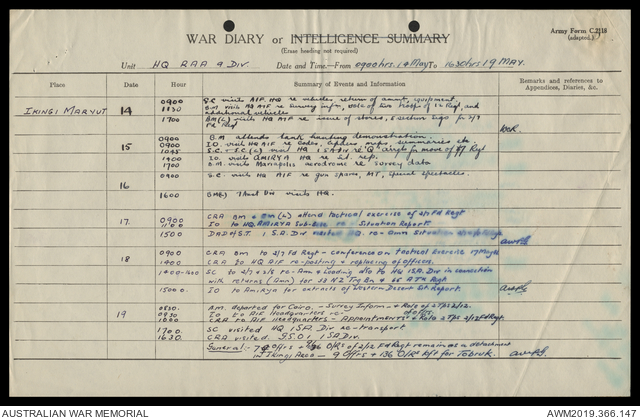 Army Form C.2118
(adapted.)
WAR DIARY or INTELLIGENCE SUMMARY
(Erase heading not required)
Unit HQ RAA 9 Div Date and Time—From 0900hrs. 14 May To 1630hrs 19 MAY.
Place Date Hour Summary of Events and Information Remarks and references to Appendices, Diaries, &c.
IKINGI MARYUT 14 0900 S.C. visits AIF HQ re vehicles, return of ammt, equipment.
1130 B.M. visit HQ AIF re Survey info, role of two troops of 12 Regt, and
additional vehicles
1700 BM(L) visits HQ AIF re issue of stores, for 2/7
Fd Regt
15 0900 B.M. attends tank hunting demonstration.
0900 I.O. visits HQ AIF re Codes, ciphers, maps, summaries etc.
1045 S.C. + S.C.(L) visit HQ 1 SA Div re "Q" angle for move of #7 Regt
1400 I.O. visits AMIRYA HQ re Sit. rep.
1700 B.M. visits Mariopolis aerodrome re survey data
16 0900 S.C. visit HQ AIF re gun spares, MT, special spectacles.
1600 visits HQ.
17. 0900 CRA BM + BM(L) attend tactical exercise of 2/7 Fd Regt
1100 IO to HQ AMIRYA Sub- re Situation Report
1500 DADOST 1 S.A. Div visited HQ re Amn
18 0900 CRA BM to 2/7 Fd Regt - Conference on tactical Exercise 17 May
1400 CRA to HQ AIF re-posting + replacing of officers.
1400-1600 SC to 2/7 + 3/8 re-Amn + Loading also to HQ 1SA Div in connection
with returns (Amn) for 23 NZ Trg Bn + 65 A Tk Regt
1500. IO to Amirya for extracts of Western Desert Sit Report.
19 0830. BM. departed for Cairo, - Survey Inform - + Role of 2 Tps 2/12.
0930 IO to AIF Headquarters re-
1000 CRA to AIF Headquarters - Appointments + Role 2 Tps 2/12 Fd Regt.
1700. SC visited HQ 1SA Div re-transport
1630. CRA visited G.S.O.1 1SA Div.
General:- 7 Offrs + 136 O/Rs of 2/12 Fd Regt remain as a detachment
in Ikingi Area - 9 Offrs + 136 O/Rs left for Tobruk.
AUSTRALIAN WAR MEMORIAL
AWM2019.366.147